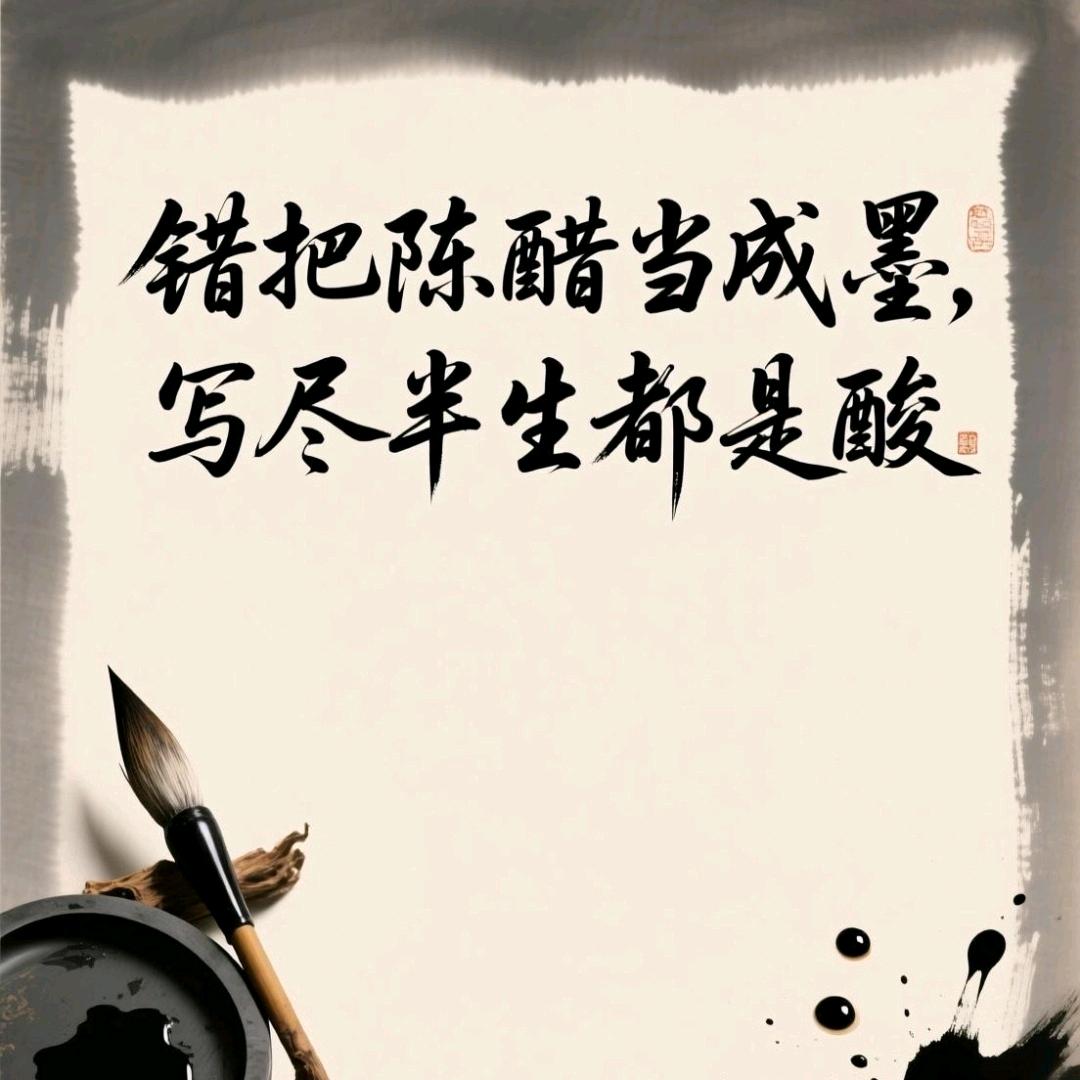 错把陈醋当成墨，
写尽半生都是酸